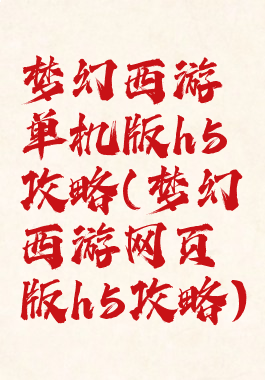 梦幻西游
单机版h5
攻略(梦幻
西游网页
版h5攻略)